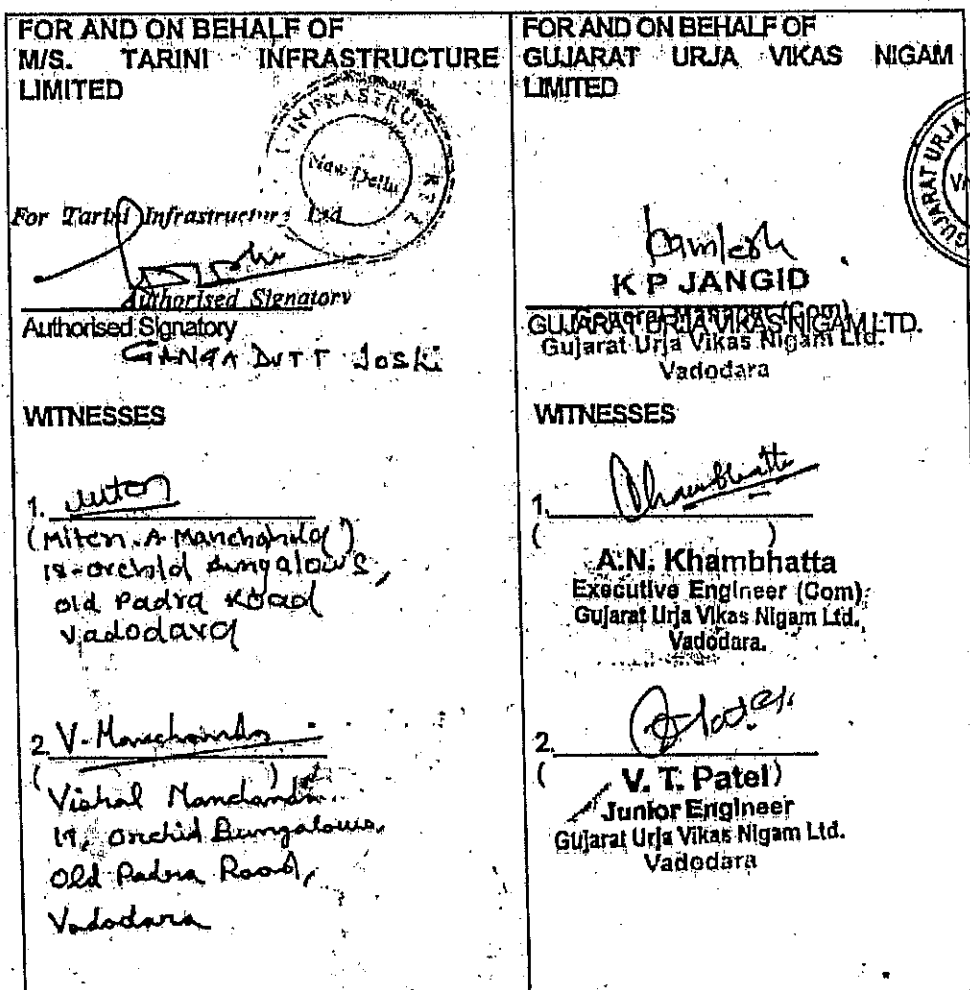 FOR AND ON BEHALF OF
M/S. TARINI INFRASTRUCTURE
LIMITED
INFRASTRUC
New Delhi
For Tarini Infrastructure Ltd
Authorised Signatory
Authorised Signatory
GANGA DUTT Joshi
WITNESSES
1.
(Miten.A.Manchanda)
18-orchid Bungalows,
old Padra Road
Vadodara
2. V. Manchanda
( )
Vishal Manchanda
17, Orchid Bungalows,
Old Padra Road,
Vadodara
FOR AND ON BEHALF OF
GUJARAT URJA VIKAS NIGAM
LIMITED
GUJARAT URJA
Kamlesh
K P JANGID
General Manager (Com)
GUJARAT URJA VIKAS NIGAM LTD.
Gujarat Urja Vikas Nigam Ltd.
Vadodara
WITNESSES
1.
( )
A.N. Khambhatta
Executive Engineer (Com)
Gujarat Urja Vikas Nigam Ltd.
Vadodara.
2.
( V. T. Patel)
Junior Engineer
Gujarat Urja Vikas Nigam Ltd.
Vadodara